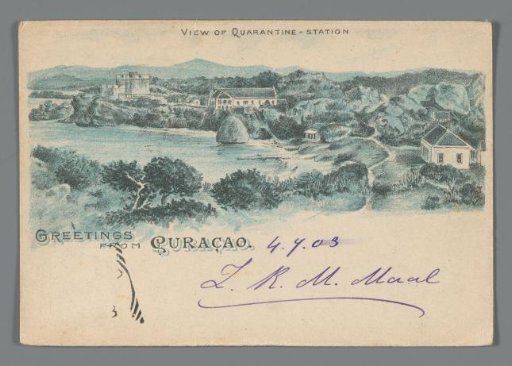 VIEW OF QUARANTINE-STATION
GREETINGS
FROM CURAÇAO. 4.7.03
L. R. M. Maal